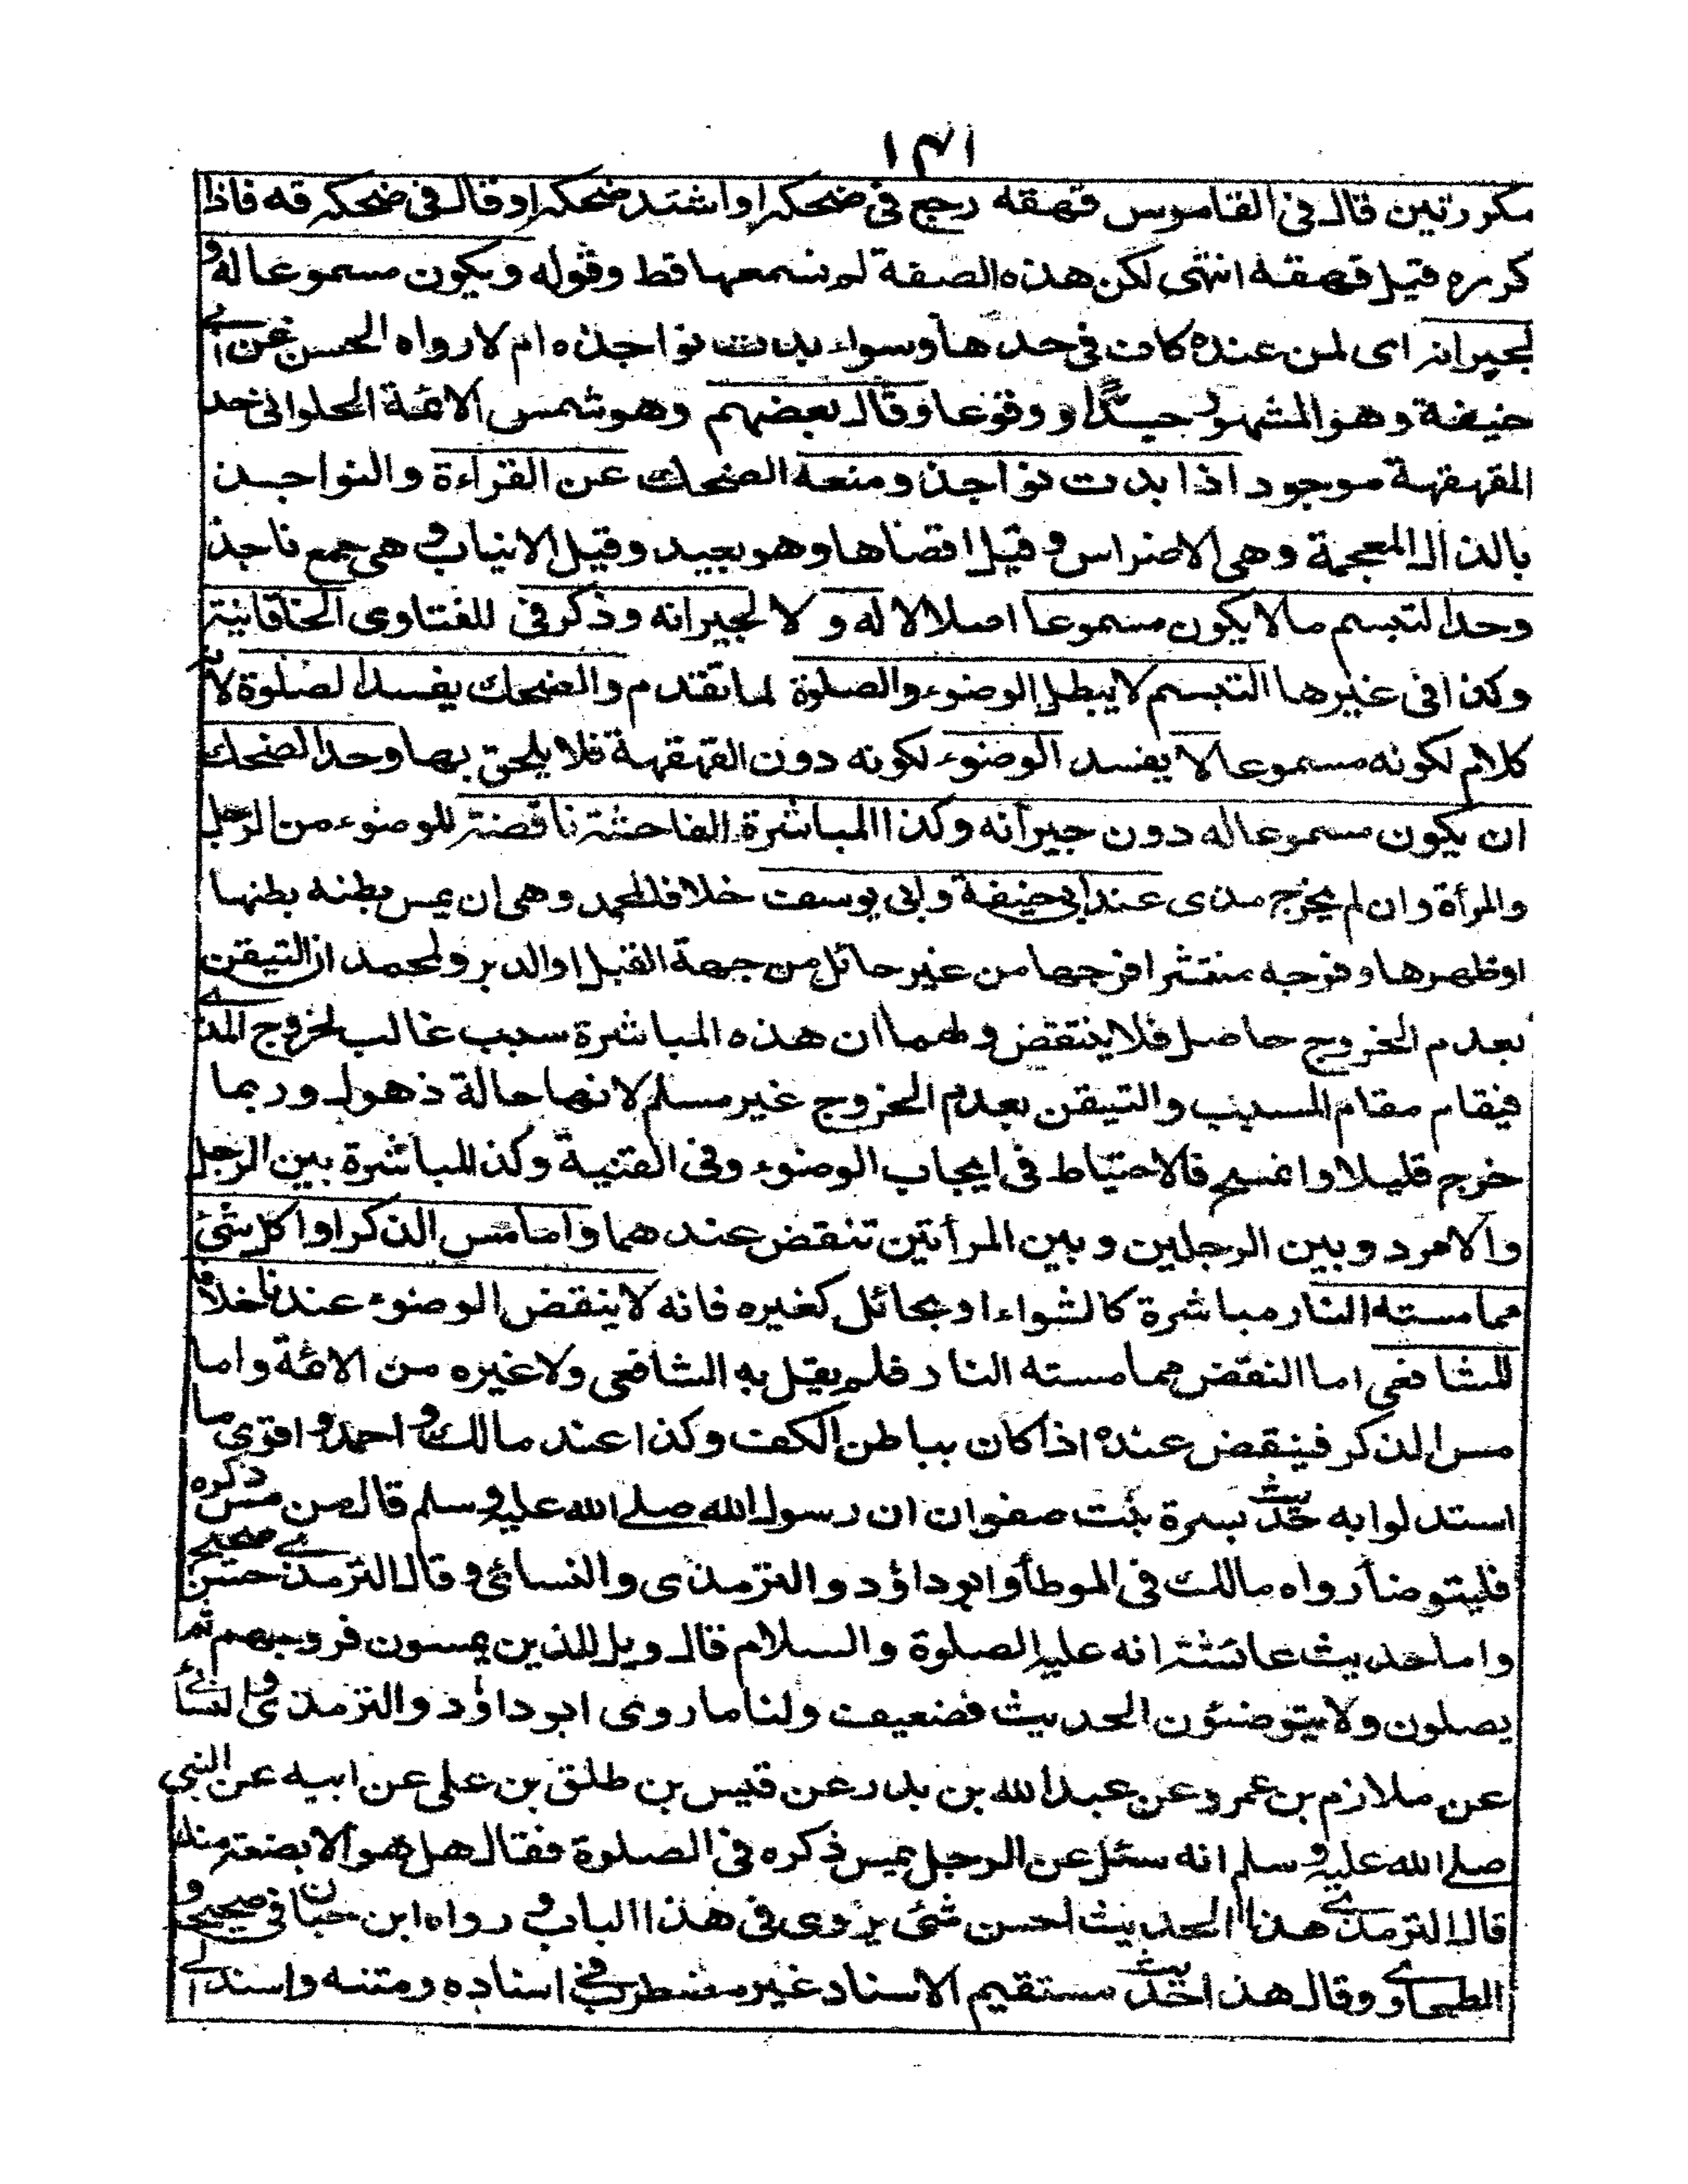 ١٤١
مكررتين قال فى القاموس قهقه رجع فى ضحكه او اشتد ضحكه او قال فى ضحكه قه فاذا
كرره قيل قهقهة انتهى لكن هذه الصفة لم نسمعها قط وقوله ويكون مسموعا له و
لجيرانه اى لمن عنده كانت فى حدها وسواء بدت نواجذه ام لا رواه الحسن عن ابى
حنيفة وهو المشهور حدا ووقوعا وقال بعضهم وهو شمس الائمة الحلوانى حد
القهقهة موجود اذا بدت نواجذ ومنعه الضحك عن القراءة والنواجذ
بالذال المعجمة وهى الاضراس وقيل اقصاها وهو بعيد وقيل الانياب وهى جمع ناجذ
وحد التبسم ما لا يكون مسموعا اصلا لا له و لا لجيرانه وذكر فى للفتاوى الخاقانية
وكذا فى غيرها التبسم لا يبطل الوضوء والصلوة لما تقدم والضحك يفسد الصلوة لانه
كلام لكونه مسموعا لا يفسد الوضوء لكونه دون القهقهة فلا يلحق بها وحد الضحك
ان يكون مسموعا له دون جيرانه وكذا المباشرة الفاحشة ناقضة للوضوء من الرجل
والمرأة وان لم يخرج مذى عند ابى حنيفة وابى يوسف خلافا لمحمد وهى ان يمس بطنه بطنها
او ظهرها وفرجه منتشرا فرجها من غير حائل من جهة القبل او الدبر ولمحمد ان التيقن
بعدم الخروج حاصل فلا ينتقض ولهما ان هذه المباشرة سبب غالب لخروج المذى
فيقام مقام المسبب والتيقن بعدم الخروج غير مسلم لانها حالة ذهول وربما
خرج قليلا وانمسح فالاحتياط فى ايجاب الوضوء وفى القنية وكذا المباشرة بين الرجل
والامرد وبين الرجلين وبين المرأتين تنقض عندهما واما مس الذكر او اكل شئ
مما مسته النار مباشرة كالشواء او بحائل كغيره فانه لا ينقض الوضوء عندنا خلافا
للشافعى اما النقض مما مسته النار فلم يقل به الشافعى ولا غيره من الائمة واما
مس الذكر فينقض عنده اذا كان بباطن الكف وكذا عند مالك واحمد واقوى ما
استدلوا به حديث بسرة بنت صفوان ان رسول الله صلى الله عليه وسلم قال من مس ذكره
فليتوضأ رواه مالك فى الموطأ وابو داؤد والترمذى والنسائى وقال الترمذى حسن صحيح
واما حديث عائشة انه عليه الصلوة والسلام قال ويل للذين يمسون فروجهم ثم
يصلون ولا يتوضئون الحديث فضعيف ولنا ما روى ابو داؤد والترمذى والنسائى
عن ملازم بن عمرو عن عبد الله بن بدر عن قيس بن طلق بن على عن ابيه عن النبى
صلى الله عليه وسلم انه سئل عن الرجل يمس ذكره فى الصلوة فقال هل هو الا بضعة منك
قال الترمذى هذا الحديث احسن شئ يروى فى هذا الباب ورواه ابن حبان فى صحيحه و
الطحاوى وقال هذا حديث مستقيم الاسناد غير مضطرب فى اسناده ومتنه واسند الى